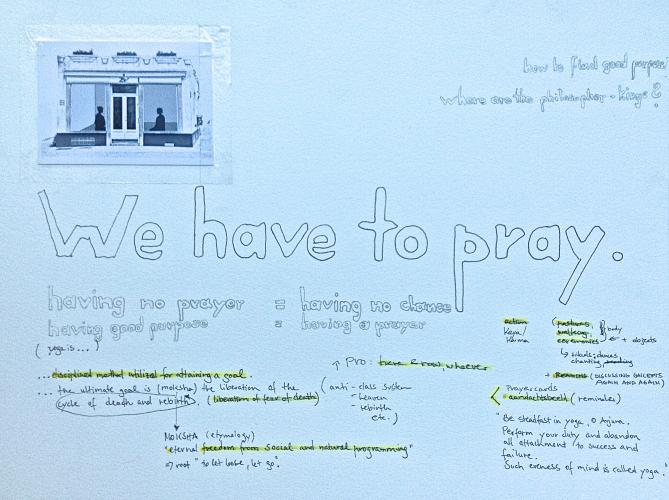 how to find good purpose?
where are the philosopher-kings?
We have to pray.
having no prayer = having no chance
having good purpose = having a prayer
(yoga is...)
... disciplined method utilized for attaining a goal.
... the ultimate goal is (moksha) the liberation of the
cycle of death and rebirth. (liberation of fear of death)
MOKSHA (etymology)
"eternal freedom from social and natural programming"
root "to let loose, let go".
Pro: here & now, whoever
(anti-class system
- heaven
- rebirth
etc.)
action (postures, body
Karma ceremonies + objects
↳ rituals; dances
chanting
+ READING (DISCUSSING CONCEPTS
AGAIN AND AGAIN)
Prayercards
aandachtsbeeld (reminders)
"Be steadfast in yoga, O Arjuna.
Perform your duty and abandon
all attachment to success and
failure.
Such eveness of mind is called yoga."